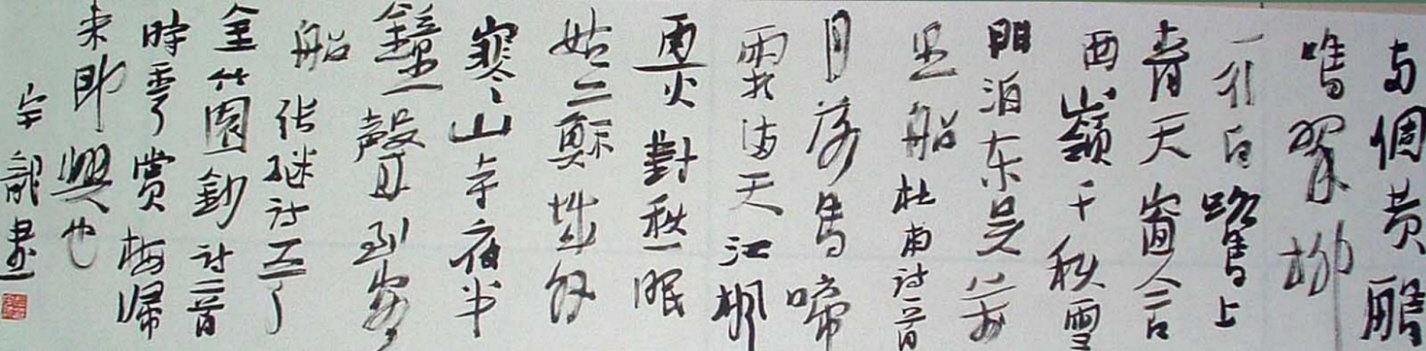 两個黄鸝
鳴翠柳
一行白鷺上
青天窗含
西嶺千秋雪
門泊东吴萬
里船 杜甫诗一首
月落烏啼
霜满天江楓
漁火對愁眠
姑蘇城外
寒山寺夜半
鐘聲到客
船 张继诗
竹園鈔诗二首
時雪赏梅歸
来即興也